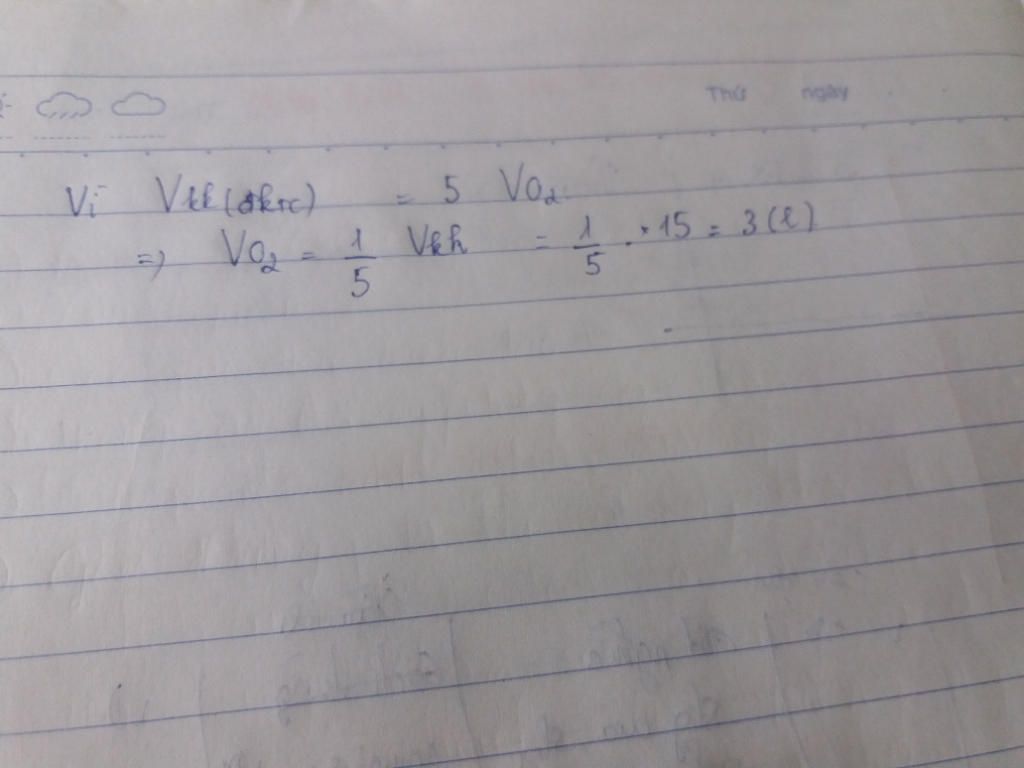 Thứ ngày
Vì Vkk (đktc) = 5 VO₂
=> VO₂ = 1/5 Vkk = 1/5 . 15 = 3 (l)